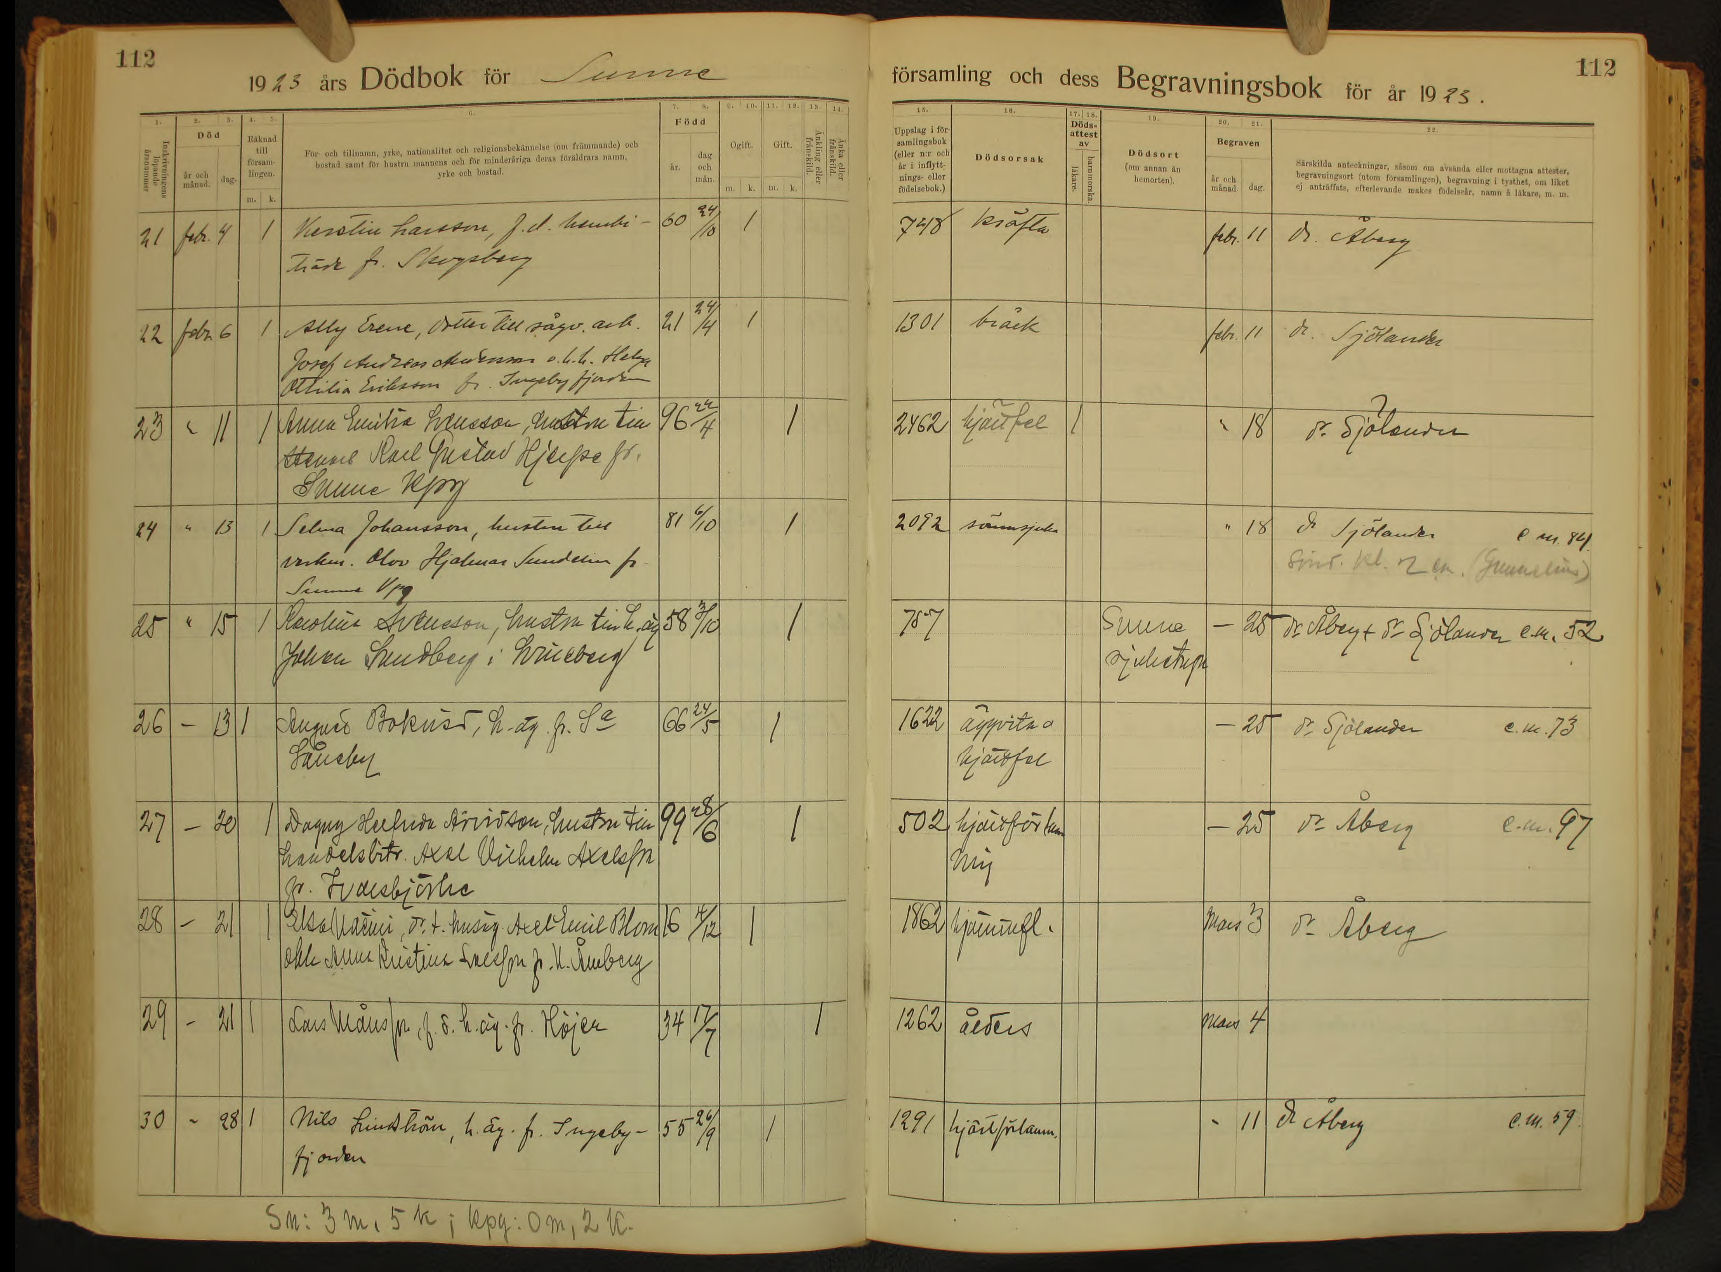 112
1923 års Dödbok för Sunne
församling och dess Begravningsbok för år 1923.
112
1. 2. 3. 4. 5. 6. 7. 8. 9. 10. 11. 12. 13. 14.
Inskrivningens löpande årsnummer
Död
år och månad.
dag.
Räknad till församlingen.
m. k.
För- och tillnamn, yrke, nationalitet och religionsbekännelse (om främmande) och
bostad samt för hustru mannens och för minderåriga deras föräldrars namn,
yrke och bostad.
Född
år.
dag och mån.
Ogift.
m. k.
Gift.
m. k.
Änkling eller frånskild.
Änka eller frånskild.
15. 16. 17. 18. 19. 20. 21. 22.
Uppslag i församlingsbok
(eller n:r och
år i inflyttnings- eller
födelsebok.)
Dödsorsak
Dödsattest av
läkare.
barnmorska.
Dödsort
(om annan än
hemorten).
Begraven
år och månad.
dag.
Särskilda anteckningar, såsom om avsända eller mottagna attester,
begravningsort (utom församlingen), begravning i tysthet, om liket
ej anträffats, efterlevande makes födelseår, namn å läkare, m. m.
21 febr. 4 1 Kerstin Larsson, f. d. hembi- 60 24/10 1
träde fr. Skogsberg
748 kräfta febr. 11 dr. Åberg
22 febr. 6 1 Ally Irene, dotter till sågv. arb. 21 24/4 1
Josef Andreas Andersson o. h. h. Helga
Ottilia Eriksson fr. Ingebyfjorden
1301 bråck febr. 11 dr. Sjölander
23 " 11 1 Anna Emilia Svensson, hustru till 96 22/4 1
Karl Gustav Hjelpe fr.
Sunne Kpg
2462 hjärtfel 1 " 18 dr Sjölander
24 " 13 1 Selma Johansson, hustru till 81 6/10 1
verkm. Olov Hjalmar Sundelin fr
Sunne kpg
2092 sömnsjuka " 18 dr Sjölander e m. 84.
kl. 2 em.
25 " 15 1 Karolina Svensson, hustru till h. äg 58 3/10 1
Johan Sundberg i Svineberg
757 Sunne — 25 dr Åberg + dr Sjölander e.m. 52
sjukstuga
26 — 13 1 August Bokvist, h.-äg. fr. Sa 66 24/5 1
Låneby
1622 äggvita o — 25 dr Sjölander e.m. 73
hjärtfel
27 — 20 1 Dagny Arvidson, hustru till 99 28/6 1
handelsbitr. Axel Vilhelm Axelsson
fr.
502 hjärtförlam — 25 dr Åberg e.m. 97
ning
28 — 21 1 Elsa Naëmi, dr. t. husäg. Axel Emil Blom 16 4/12 1
ohh Anna Kristina fr. N. Åmberg
1862 hjärninfl. Mars 3 dr Åberg
29 — 21 1 Lars Månsson, f. d. h. äg. fr. Höjen 34 17/7 1
1262 ålders Mars 4
30 " 28 1 Nils Lindström, h. äg. fr. Ingeby- 55 26/9 1
fjorden
1291 hjärtförlamn. " 11 dr Åberg e.m. 59.
Sn: 3 m, 5 k; kpg: 0 m, 2 k.